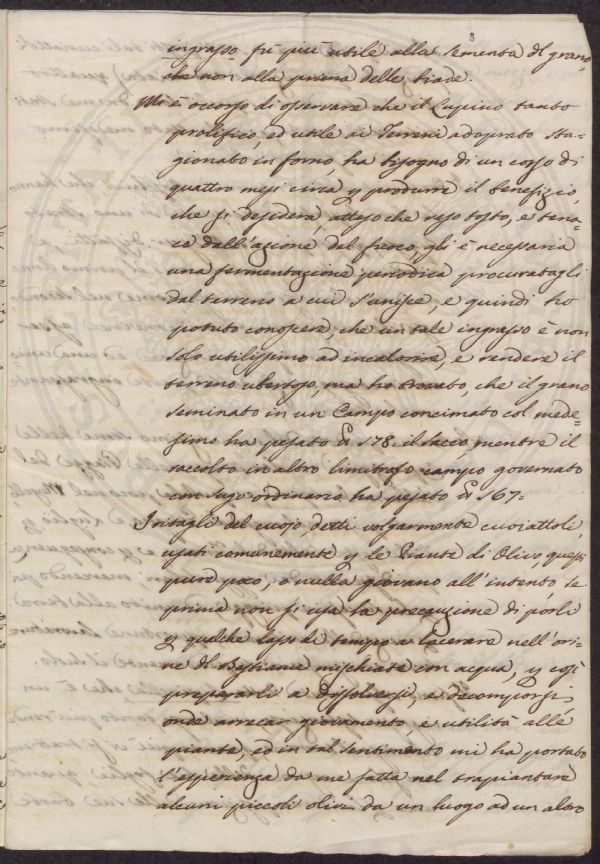 3
ingrasso fù più utile alla sementa del grano,
che non alla prima delle biade.
Mi è occorso di osservare che il Lupino tanto
prolifico, ed utile ai Terreni adoprato sta=
gionato in forno, ha bisogno di un corso di
quattro mesi circa p produrre il benefizio,
che si desidera, atteso che reso tosto, e tena=
ce dall'azione del fuoco, gli è necessaria
una fermentazione periodica procuratagli
dal terreno a cui s'unisce, e quindi ho
potuto conoscere, che un tale ingrasso è non
solo utilissimo ad incalorire, e rendere il
terreno ubertoso, ma ho trovato, che il grano
seminato in un Campo concimato col mede=
simo ha pesato 178. il sacco, mentre il
raccolto in altro limitrofo campo governato
con sugo ordinario ha pesato 167=
Intagli del cuojo, detti volgarmente cuoiattoli,
usati comunemente p le Piante di Olivo, questi
pure poco, o nulla giovano all'intento, se
prima non si usa la precauzione di porli
p qualche lasso di tempo a lacerare nell'ori=
ne del Bestiame mischiate con acqua, p così
prepararli a dissolversi, e decomporsi,
onde arrecar giovamento, e utilità alle
piante, ed in tal sentimento mi ha portato
l'esperienza da me fatta nel trapiantare
alcuni piccoli olivi da un luogo ad un altro